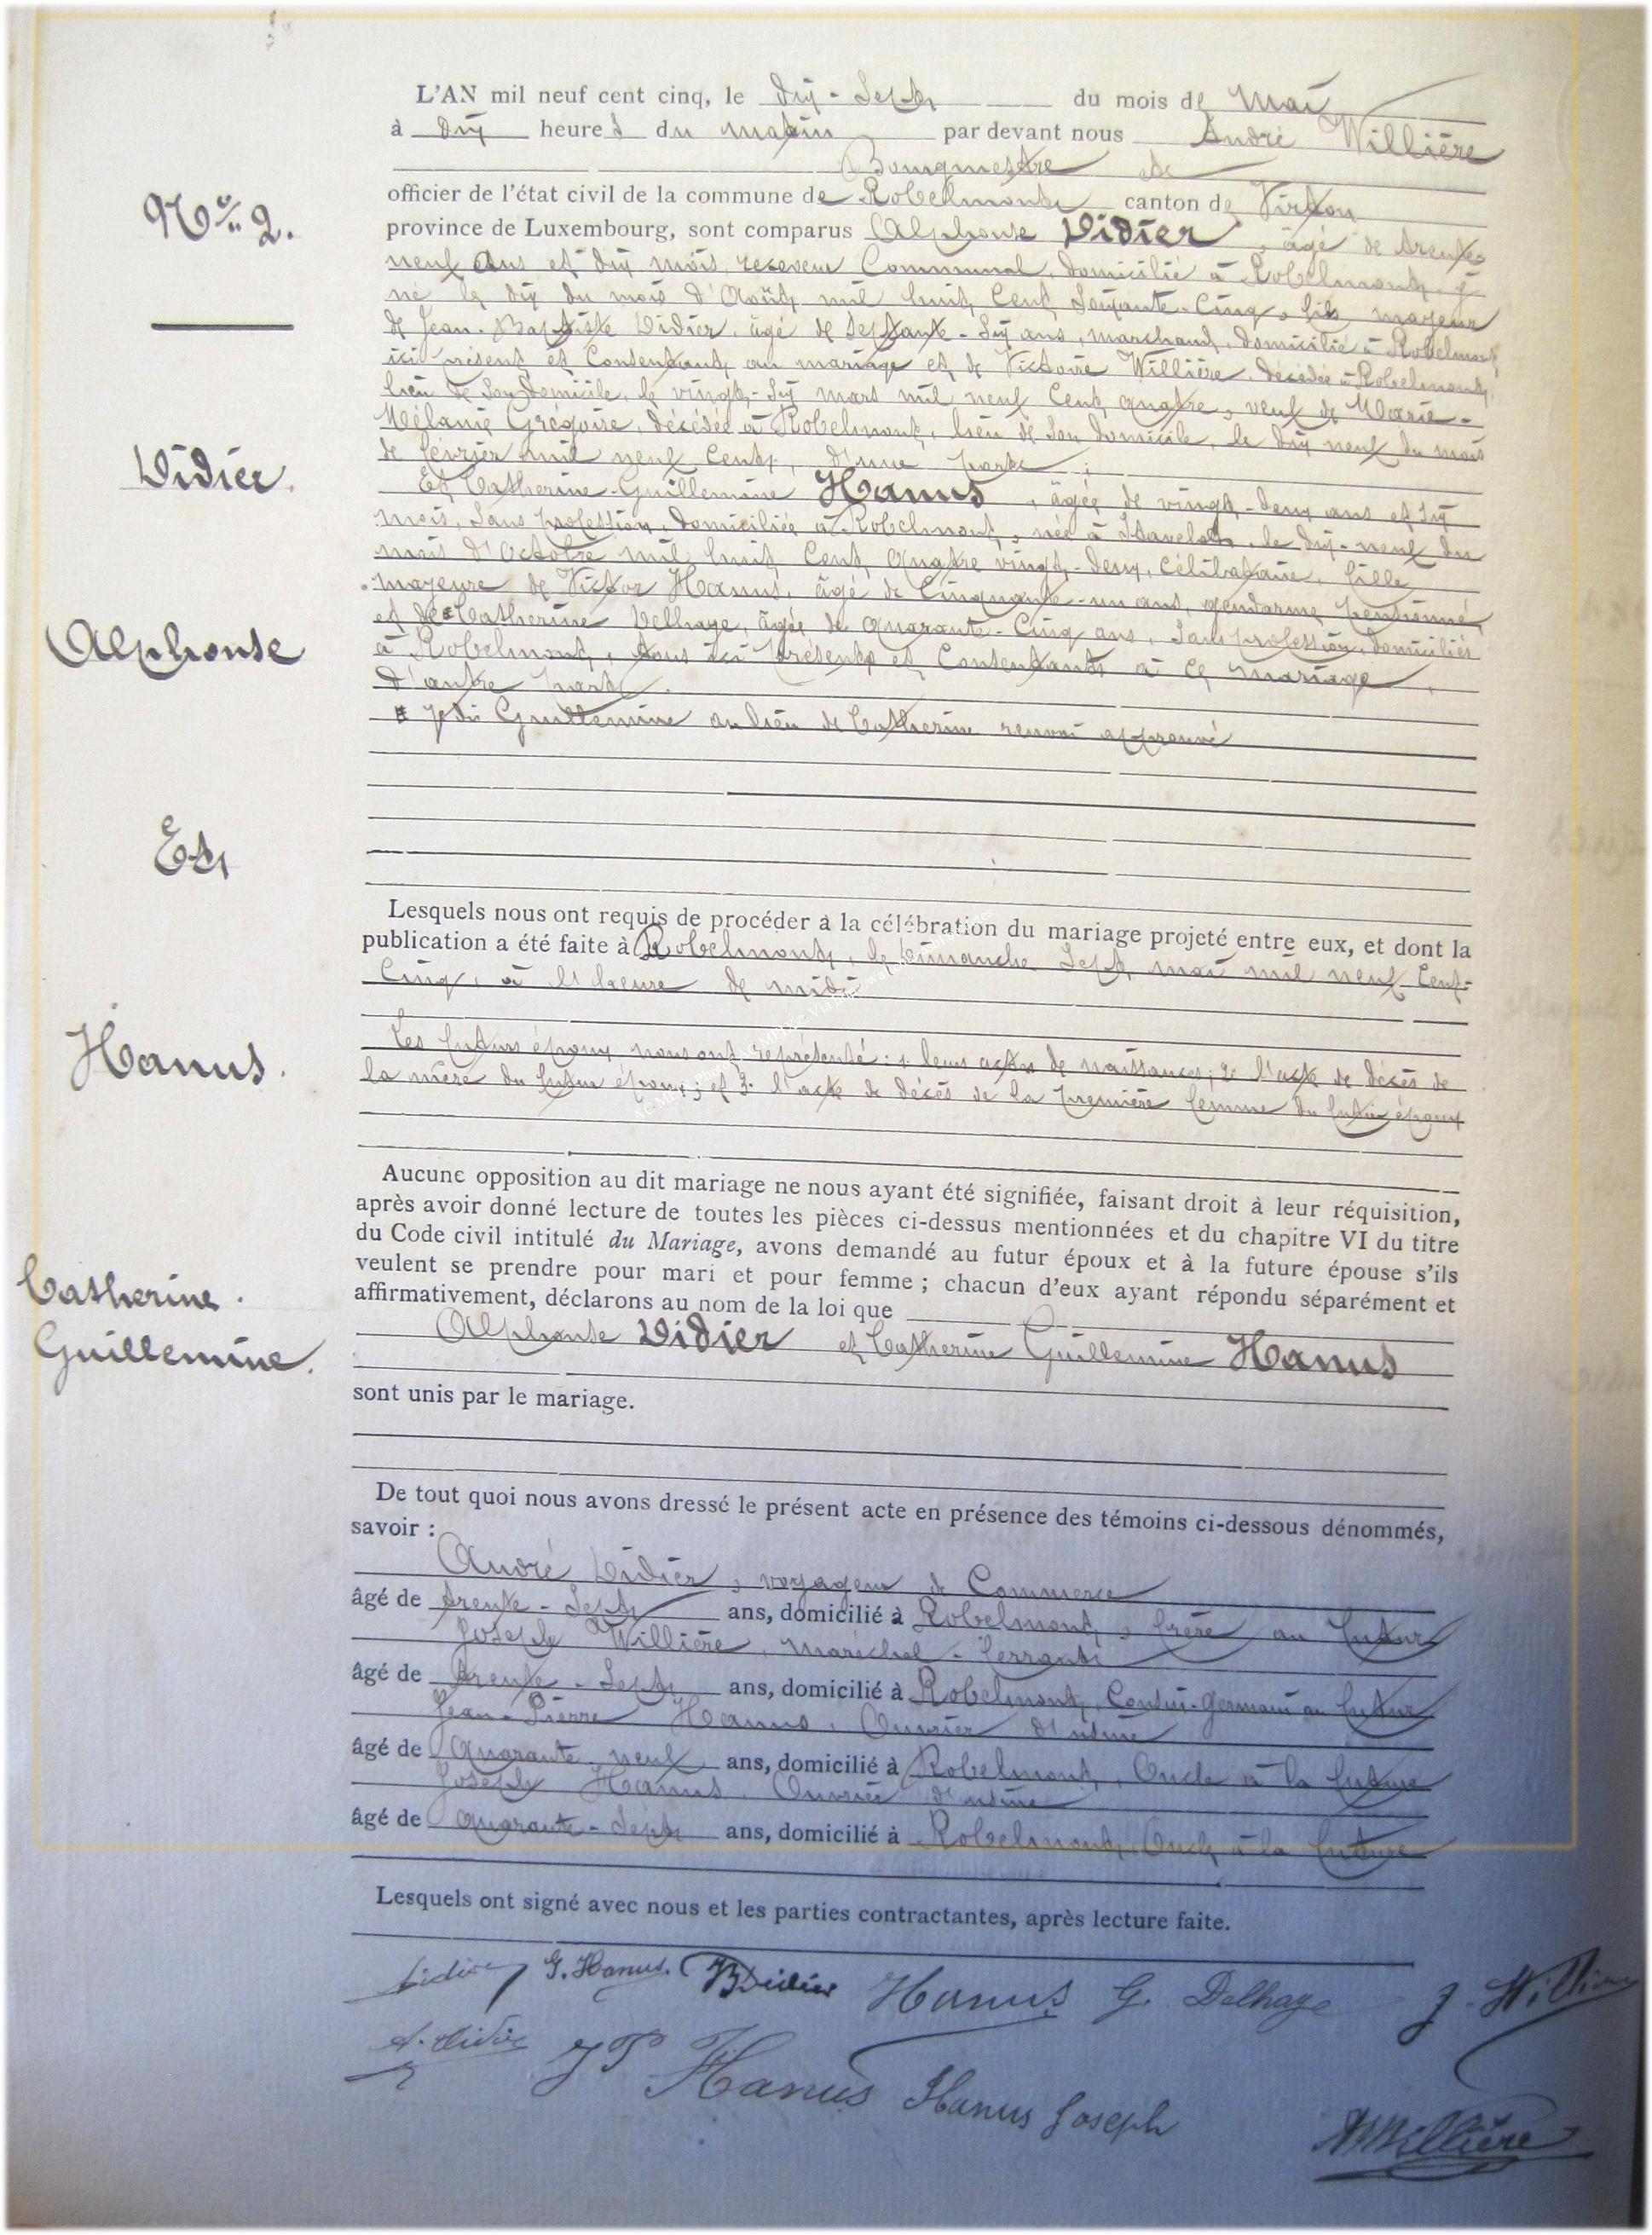 L'AN mil neuf cent cinq, le dix-sept du mois de Mai
à dix heures du matin par devant nous André Willière
Bourgmestre de
officier de l'état civil de la commune de Robelmont canton de Virton
province de Luxembourg, sont comparus Alphonse Didier, âgé de trente-
neuf ans et dix mois, receveur Communal, domicilié à Robelmont, y
né le dix du mois d'Août mil huit Cent Soixante-Cinq, fils majeur
de Jean-Baptiste Didier, âgé de Septante-Six ans, marchand, domicilié à Robelmont,
ici présent et Consentant au mariage et de Victoire Willière, décédée à Robelmont,
lieu de Son domicile, le vingt-Six mars mil neuf Cent quatre, veuf de Marie-
Mélanie Grégoire, décédée à Robelmont, lieu de Son domicile, le dix neuf du mois
de février mil neuf Cent, d'une part ;
Et Catherine-Guillemine Hanus, âgée de vingt-deux ans et Six
mois, Sans profession, domiciliée à Robelmont, née à Stavelot, le dix-neuf du
mois d'Octobre mil huit Cent quatre vingt-deux, Célibataire, fille
majeure de Victor Hanus, âgé de Cinquante-un ans, gendarme pensionné,
et de Catherine Delhaye, âgée de quarante-Cinq ans, Sans profession, domiciliés
à Robelmont, tous ici présents et Consentants à ce mariage,
d'autre part.
Guillemine au lieu de Catherine renvoi approuvé
Nº 2.
Didier.
Alphonse
Et
Hanus.
Catherine.
Guillemine.
Lesquels nous ont requis de procéder à la célébration du mariage projeté entre eux, et dont la
publication a été faite à Robelmont, le Dimanche Sept mai mil neuf Cent-
Cinq, à l'heure de midi
Les futurs époux nous ont représenté : 1. leurs actes de naissances; 2. l'acte de décès de
la mère du futur époux; et 3. l'acte de décès de la première femme du futur époux
Aucune opposition au dit mariage ne nous ayant été signifiée, faisant droit à leur réquisition,
après avoir donné lecture de toutes les pièces ci-dessus mentionnées et du chapitre VI du titre
du Code civil intitulé du Mariage, avons demandé au futur époux et à la future épouse s'ils
veulent se prendre pour mari et pour femme ; chacun d'eux ayant répondu séparément et
affirmativement, déclarons au nom de la loi que
Alphonse Didier et Catherine Guillemine Hanus
sont unis par le mariage.
De tout quoi nous avons dressé le présent acte en présence des témoins ci-dessous dénommés,
savoir :
André Didier, voyageur de Commerce
âgé de trente-Sept ans, domicilié à Robelmont, frère au futur
Joseph Willière, maréchal-ferrant
âgé de trente-Sept ans, domicilié à Robelmont, Cousin-germain au futur
Jean-Pierre Hanus, Ouvrier d'usine
âgé de Quarante neuf ans, domicilié à Robelmont, Oncle à la future
Joseph Hanus, Ouvrier d'usine
âgé de quarante-Sept ans, domicilié à Robelmont, Oncle à la future
Lesquels ont signé avec nous et les parties contractantes, après lecture faite.
Didier G. Hanus. Didier Hanus G. Delhaye J. Willière
A. Didier J P Hanus Hanus Joseph
Willière